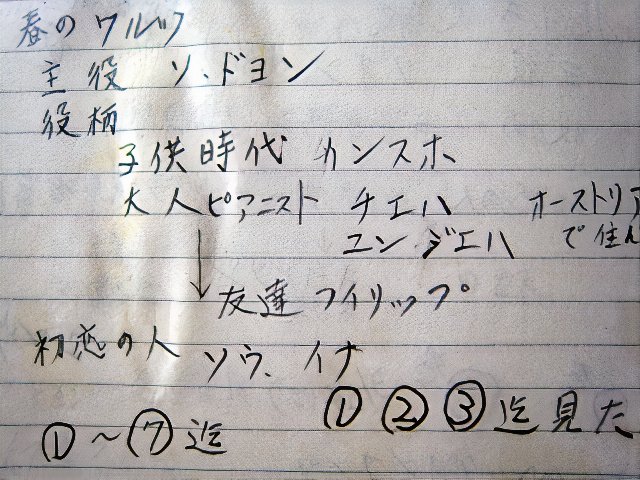 春のワルツ
主役 ソ、ドヨン
役柄
子供時代 カンスホ
大人ピアニスト チエハ オーストリア
ユン ジエハ で住ん
↓ 友達 フイリップ
初恋の人 ソウ、イナ
① ② ③ 迄見た
①～⑦迄